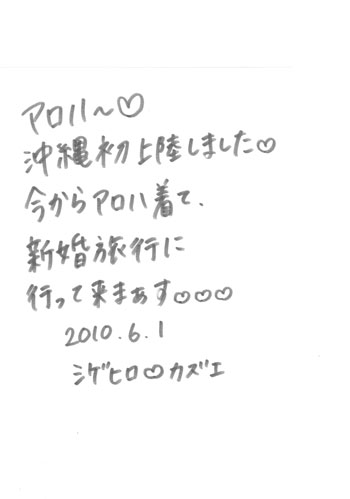 アロハ~♡
沖縄初上陸しました♡
今からアロハ着て、
新婚旅行に
行って来まぁす♡♡♡
2010.6.1
シゲヒロ♡カズエ